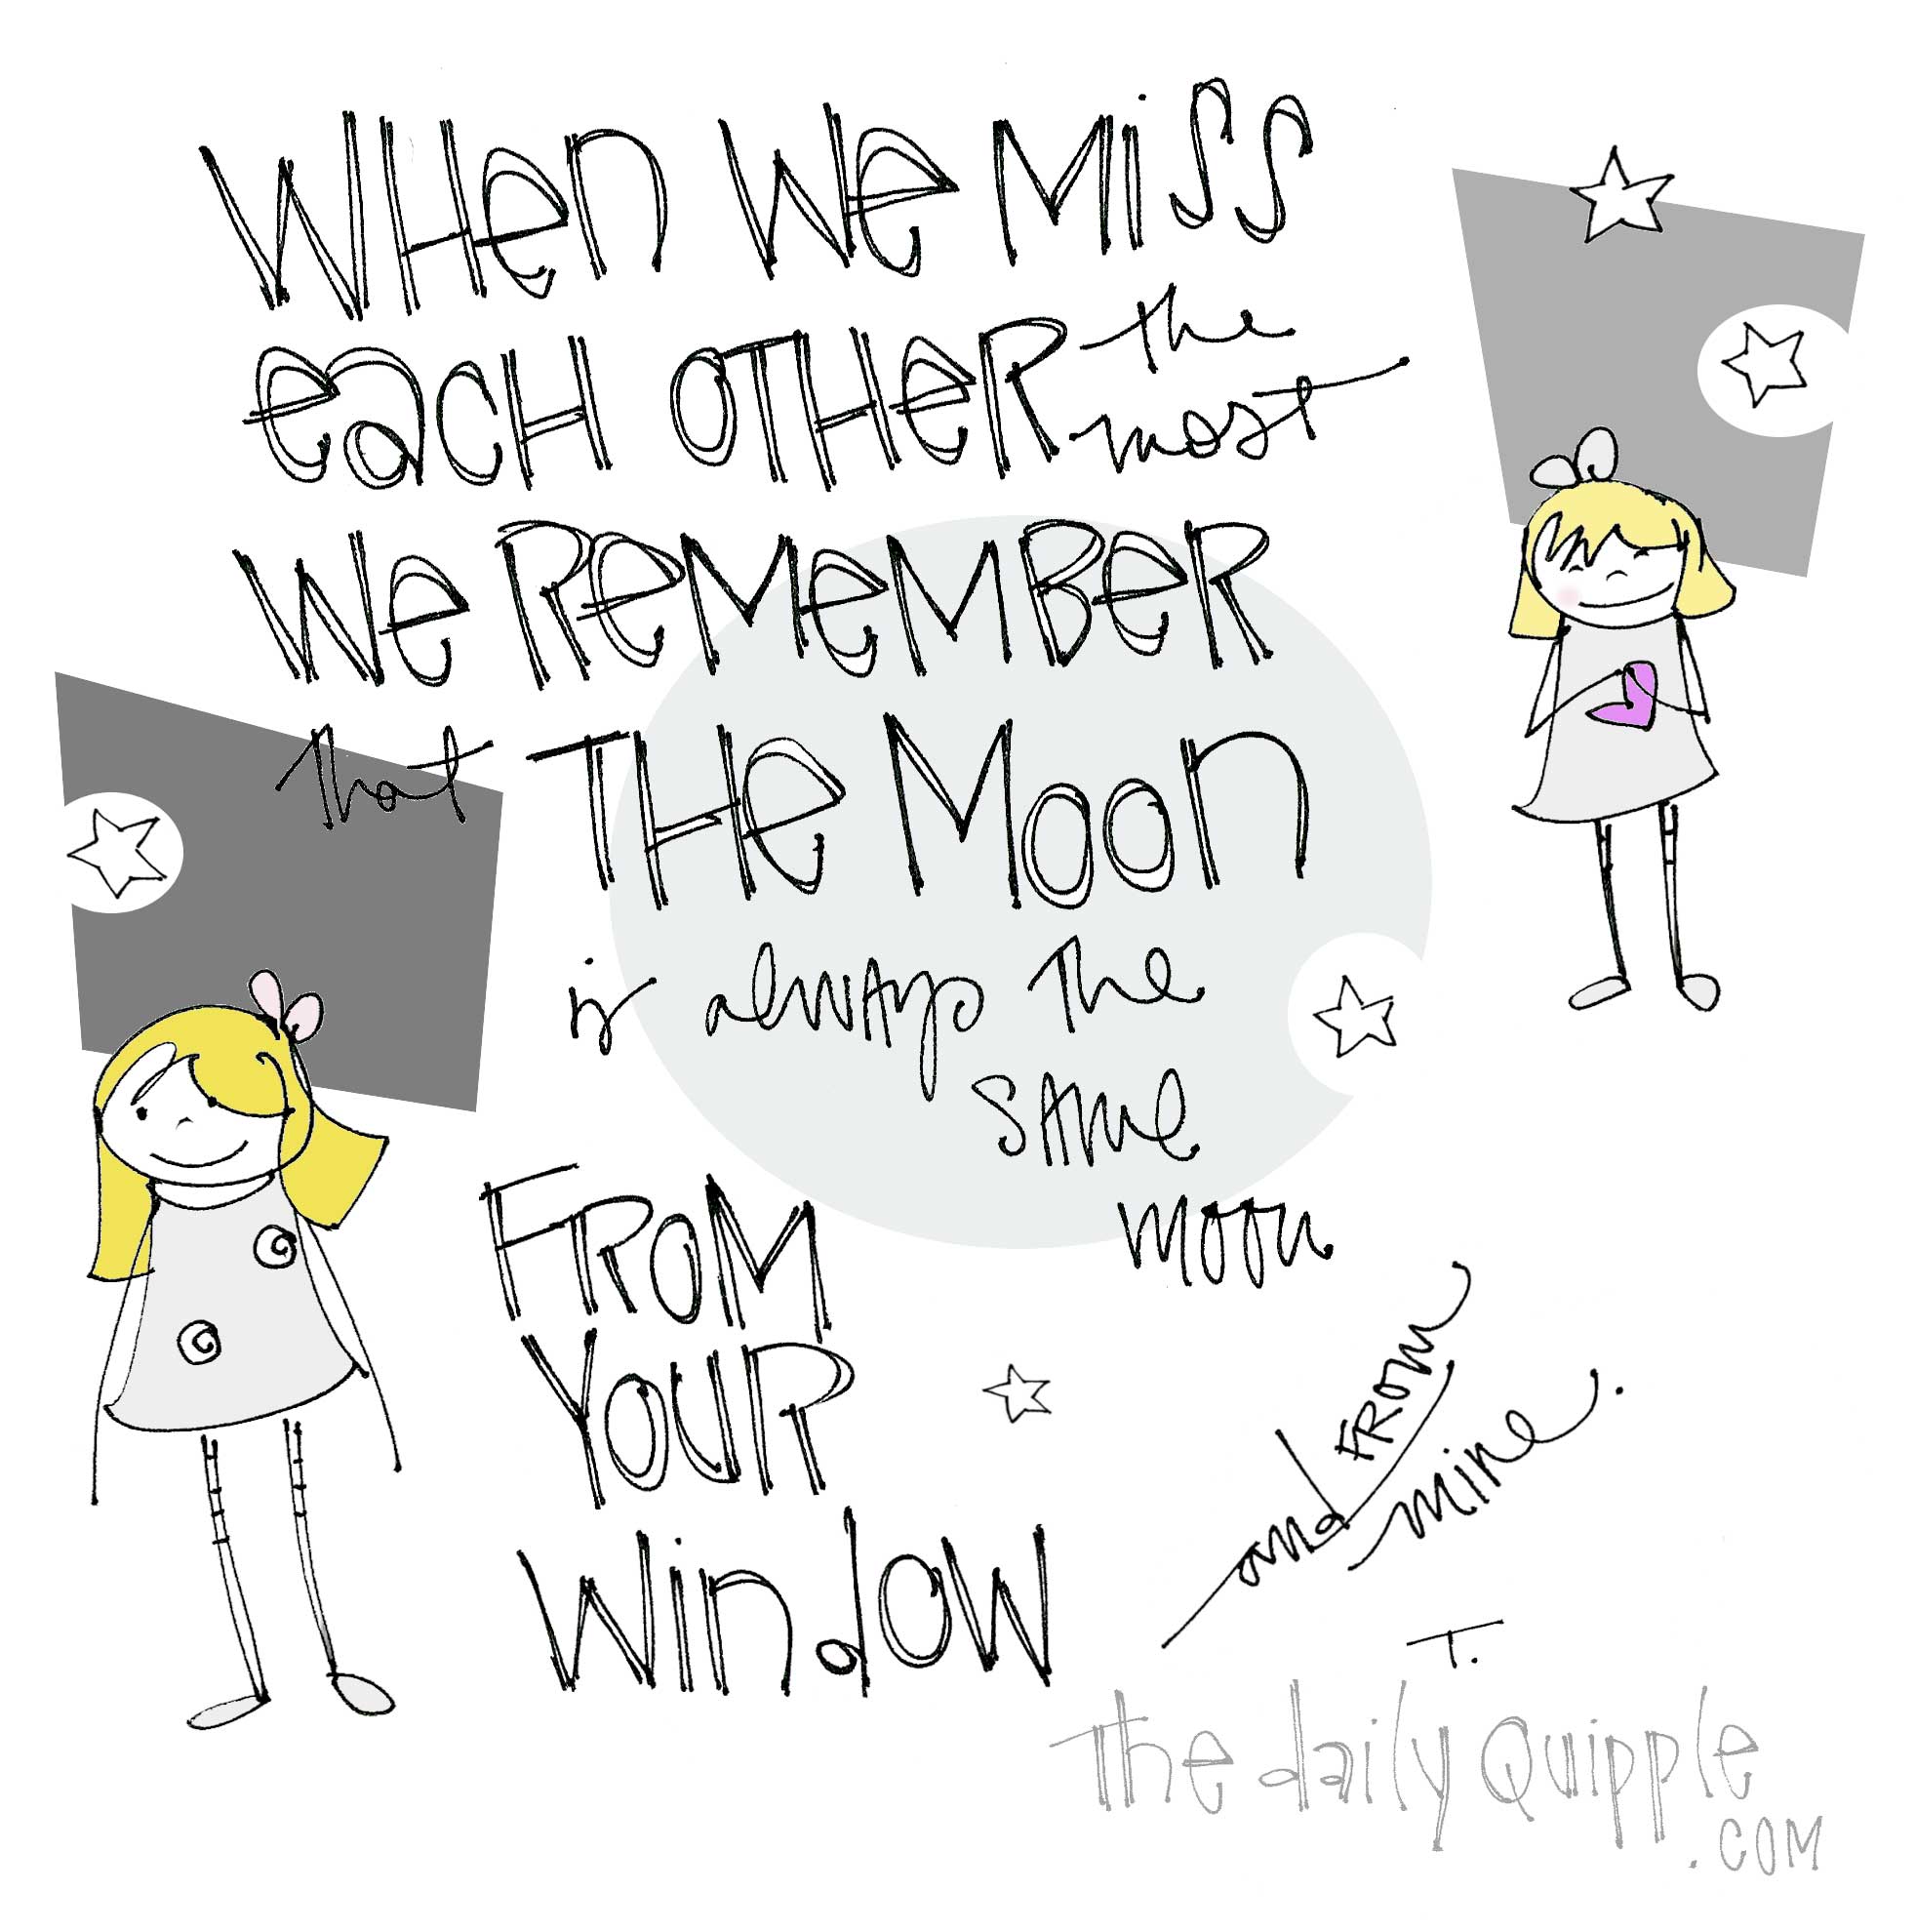 WHen We Miss
eacH OTHeR the
most
We ReMeMBeR
that THe Moon
is always the
SAme
moon
FRoM
YouR
Window
and FROM
mine.
T.
The daily Quipple
.COM